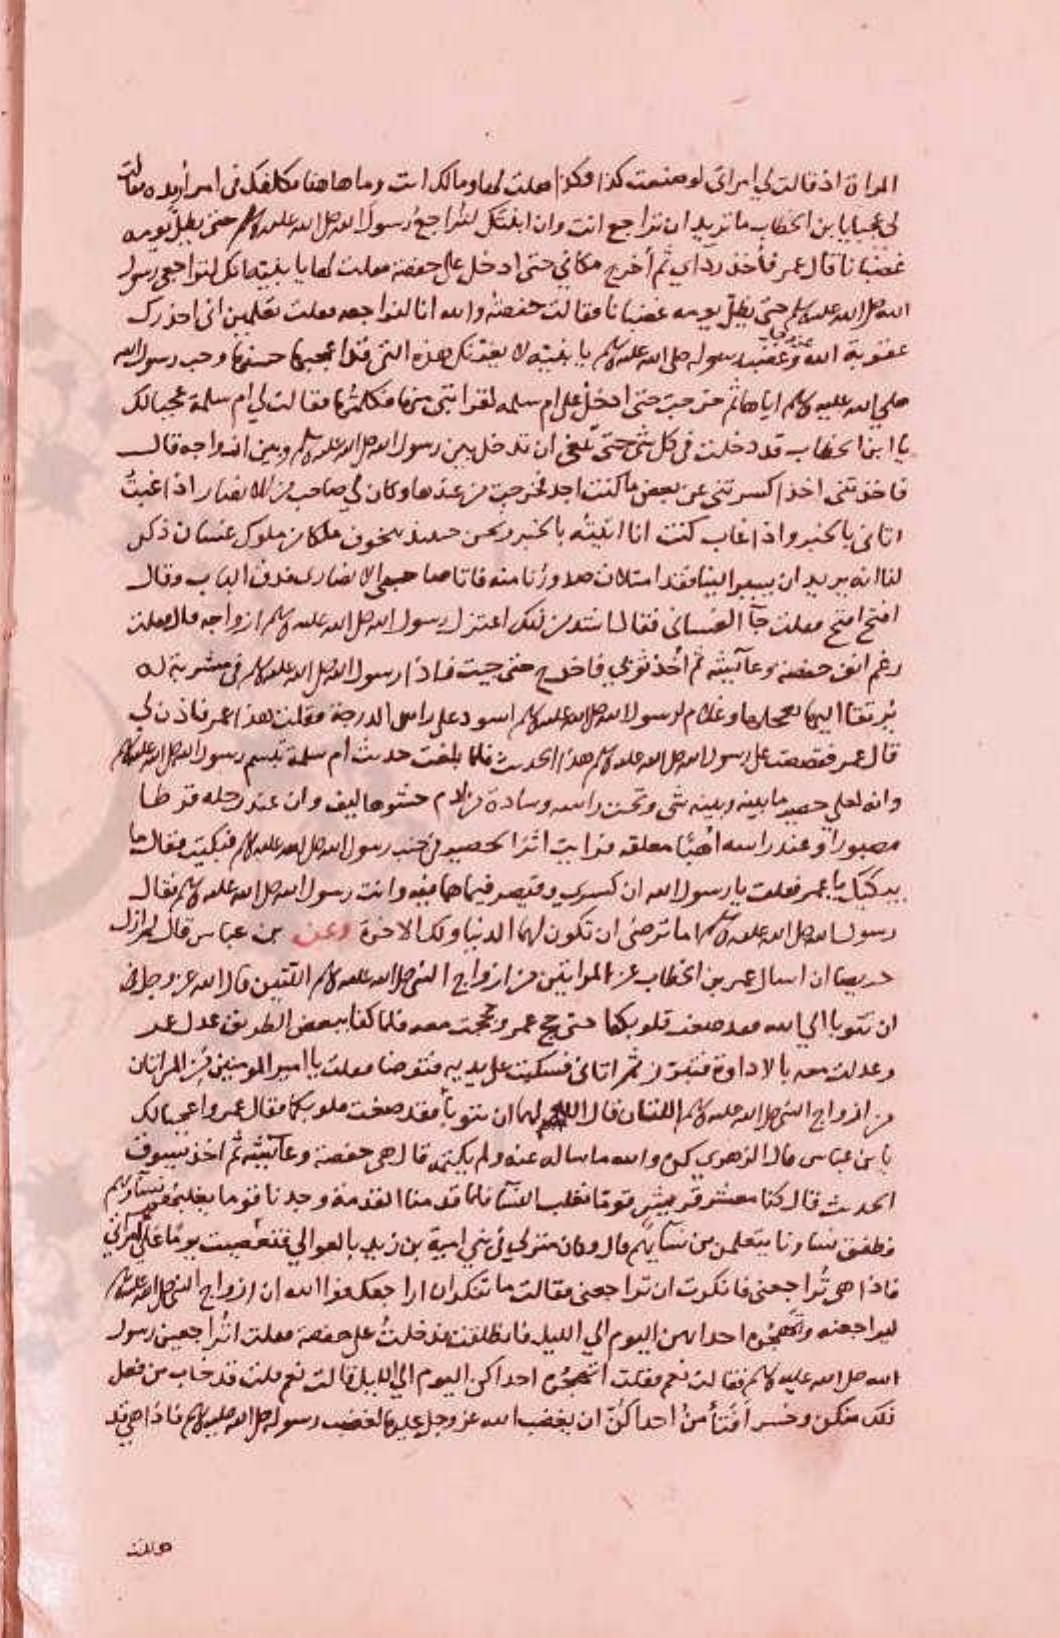 المراة اذ قالت لي امراتي لو صنعت كذا وكذا فقلت لها ومالك انت وما هاهنا تكلفك في امر اريده فقالت
لي عجبا يا بن الخطاب ما تريد ان تراجع انت وان ابنتك لتراجع رسول الله صلى الله عليه وسلم حتى يظل يومه
غضبانا قال عمر فأخذ رداي ثم أخرج مكاني حتى ادخل على حفصة فقلت لها يا بنية انك لتراجعي رسول
الله صلى الله عليه وسلم حتى يظل يومه غضبانا فقالت حفصة والله انا لنراجعه فقلت تعلمين اني احذرك
عقوبة الله وغضب رسوله صلى الله عليه وسلم يا بنية لا يغرنك هذه التي قد اعجبها حسنها وحب رسول الله
صلي الله عليه وسلم اياها ثم خرجت حتى ادخل على ام سلمه لقرابتي منها فكلمتها فقالت لي ام سلمة عجبا لك
يا ابن الخطاب قد دخلت في كل شي حتى تبغي ان تدخل بين رسول الله صلى الله عليه وسلم وبين ازواجه قال
فاخذتني اخذا كسرتني عن بعض ما كنت اجد فخرجت من عندها وكان لي صاحب من الانصار اذا غبت
اتاني بالخبر واذا غاب كنت انا اتيته بالخبر ونحن حينئذ نخوف ملكا من ملوك غسان ذكر
لنا انه يريد ان يسير الينا فقد امتلات صدورنا منه فاتا صاحبي الانصاري فدق الباب وقال
افتح افتح فقلت جآ الغساني فقال اشد من ذلك اعتزل رسول الله صلى الله عليه وسلم ازواجه قال فقلت
رغم انف حفصة وعآئشة ثم أخذ ثوبي فاخرج حتى جيت فاذا رسول الله صلى الله عليه وسلم في مشربة له
يرتقا اليها بعجلها وغلام لرسول الله صلى الله عليه وسلم اسود على راس الدرجة فقلت هذا عمر فاذن لي
قال عمر فقصصت على رسول الله صلى الله عليه وسلم هذا الحديث فلما بلغت حديث أم سلمة تبسم رسول الله صلى الله عليه وسلم
وانه لعلي حصير ما بينه وبينه شي وتحت راسه وسادة من ادم حشوها ليف وان عند رجله قرظا
مصبورا وعند راسه اهبًا معلقه فرايت اثر الحصير في جنب رسول الله صلى الله عليه وسلم فبكيت فقال ما
يبكيك يا عمر فقلت يا رسول الله ان كسري وقيصر فيما هما فيه وانت رسول الله صلى الله عليه وسلم فقال
رسول الله صلى الله عليه وسلم اما ترضى ان تكون لهما الدنيا ولك الاخرة وعن بن عباس قال لم ازل
حريصا ان اسال عمر بن الخطاب عن المراتين من ازواج النبي صلى الله عليه وسلم اللتين قال الله عز وجل لهما
ان تتوبا الي الله فقد صغت قلوبكما حتى حج عمر وحججت معه فلما كنا ببعض الطريق عدل عمر
وعدلت معه بالاداوة فتبرز ثم اتاني فسكبت على يديه فتوضا فقلت يا امير المومنين من المراتان
من ازواج النبي صلى الله عليه وسلم اللتان قال الله لهما ان تتوبا فقد صغت قلوبكما فقال عمر واعجبا لك
يا بن عباس قال الزهري كره والله ما ساله عنه ولم يكتمه قال هي حفصة وعآئشة ثم اخذ يسوق
الحديث قال كنا معشر قريش قوما نغلب النسآ فلما قدمنا المدينة وجدنا قوما يغلبهم نسآوهم
فطفق نساونا يتعلمن من نسآئهم قال وكان منزلي في بني امية بن زيد بالعوالي فتغضبت يومًا على امراتي
فاذا هي تُراجعني فانكرت ان تراجعني فقالت ما تنكر ان اراجعك فوالله ان ازواج النبي صلى الله عليه وسلم
ليراجعنه وتهجره احداهن اليوم الي الليل فانطلقت فدخلت على حفصة فقلت اتراجعين رسول
الله صلى الله عليه وسلم فقالت نعم فقلت اتهجره احداكن اليوم الي الليل قالت نعم قلت قد خاب من فعل
ذلك منكن وخسر أفتأمن احداكن ان يغضب الله عز وجل عليها لغضب رسوله صلى الله عليه وسلم فاذا هي قد